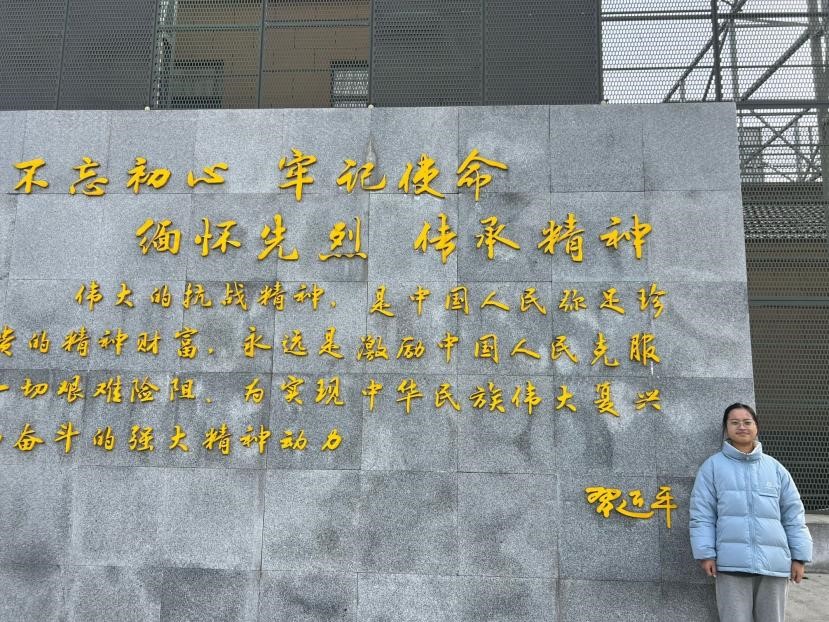 不忘初心 牢记使命
缅怀先烈 传承精神
伟大的抗战精神，是中国人民弥足珍
贵的精神财富，永远是激励中国人民克服
一切艰难险阻、为实现中华民族伟大复兴
奋斗的强大精神动力
习近平